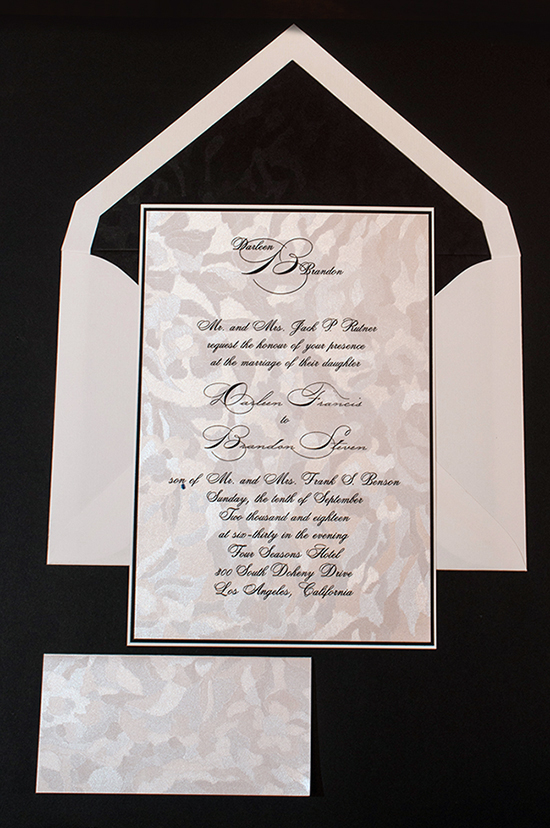 Darleen
B
Brandon
Mr. and Mrs. Jack P Rutner
request the honour of your presence
at the marriage of their daughter
Darleen Francis
to
Brandon Steven
son of Mr. and Mrs. Frank S. Benson
Sunday, the tenth of September
Two thousand and eighteen
at six-thirty in the evening
Four Seasons Hotel
300 South Doheny Drive
Los Angeles, California